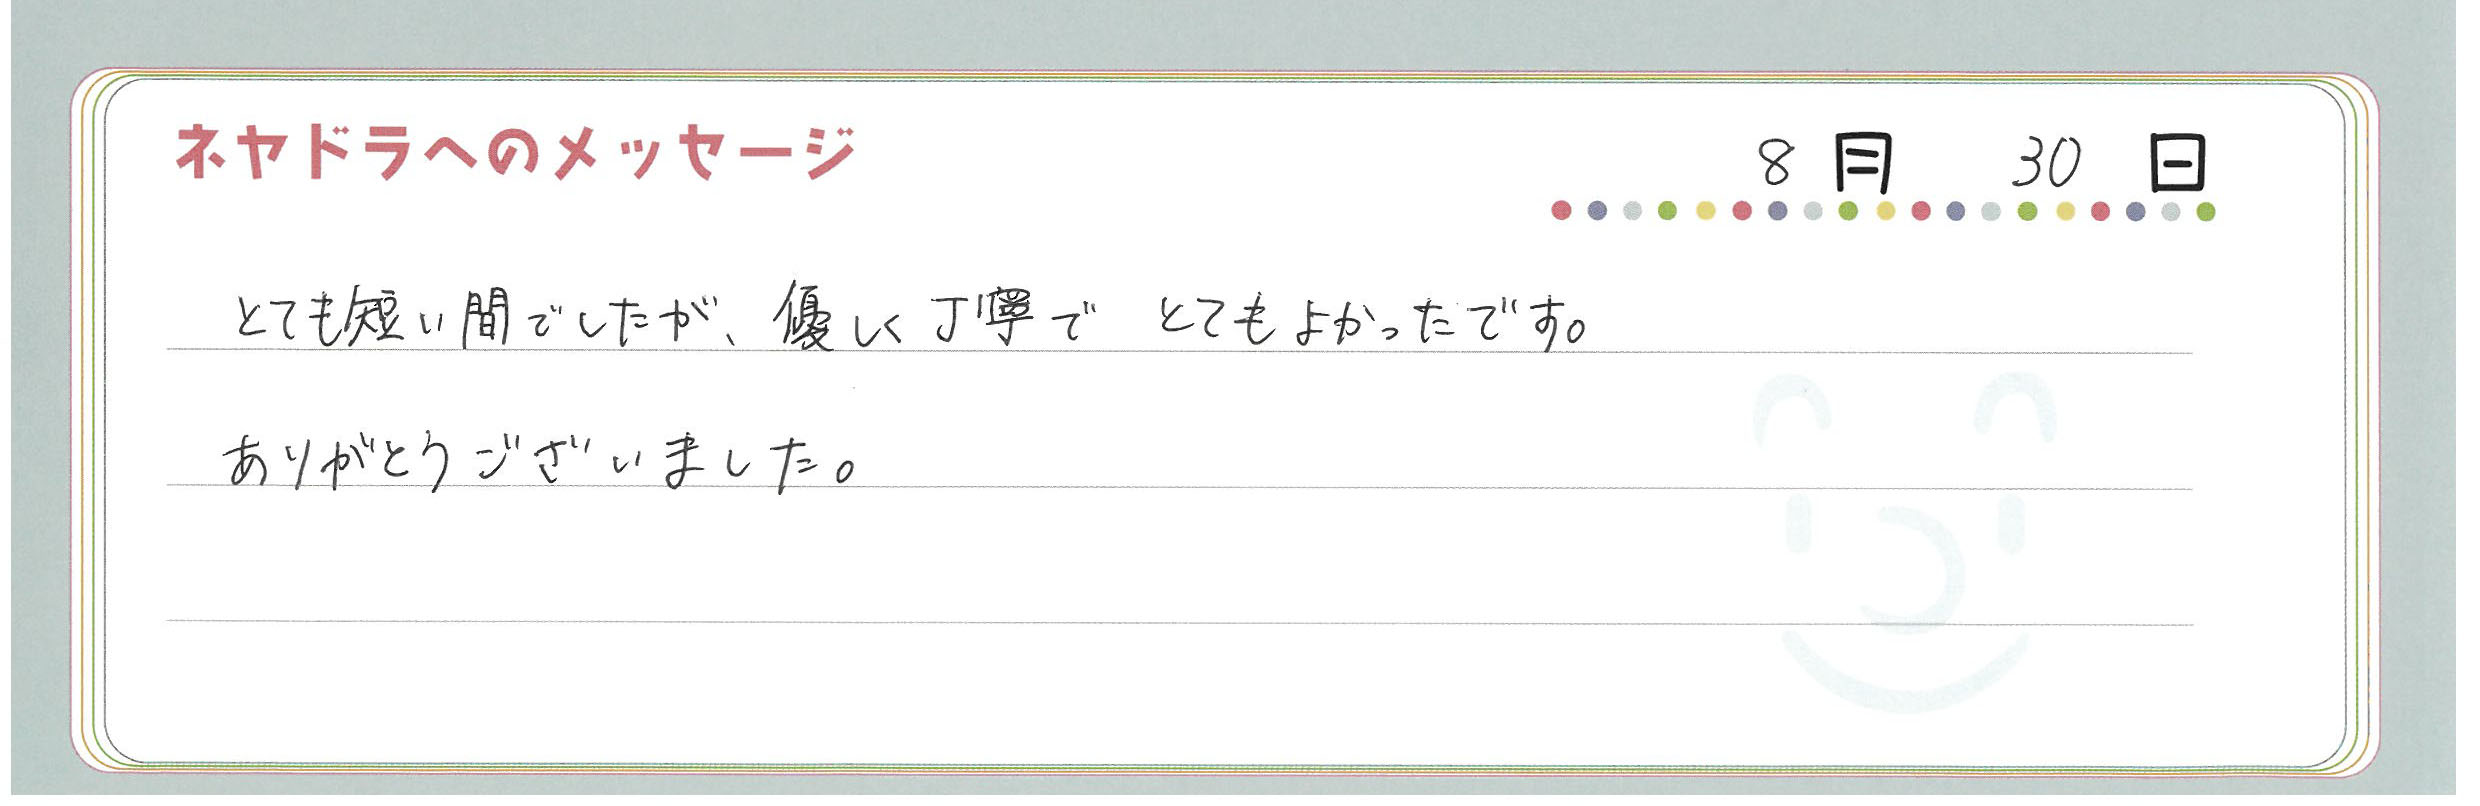 ネヤドラへのメッセージ
8月 30日
とても短い間でしたが、優しく丁寧で とてもよかったです。
ありがとうございました。